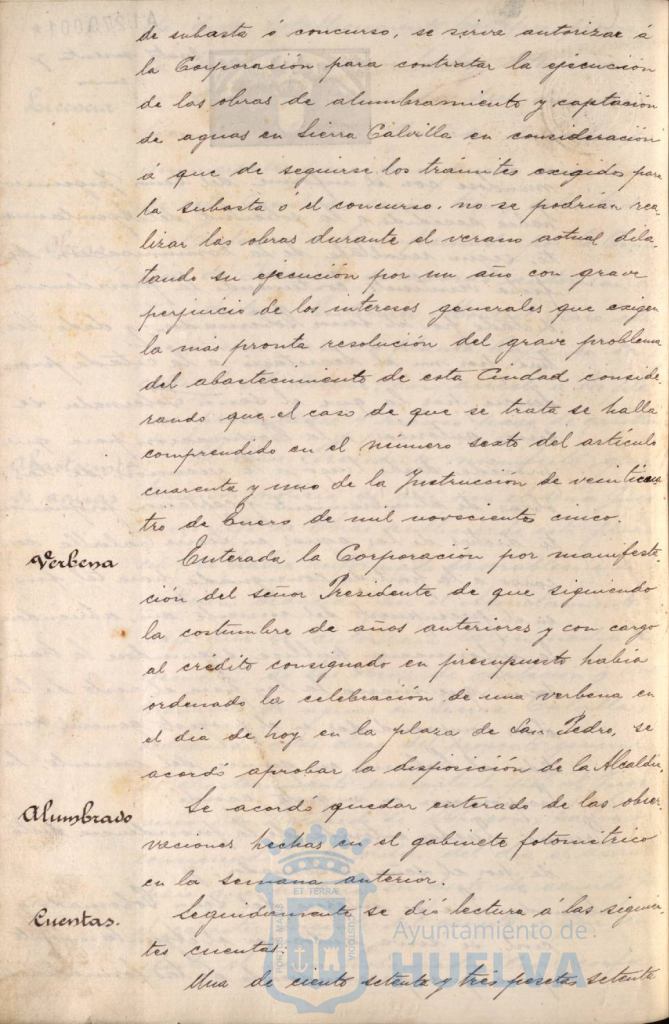 de subasta ó concurso, se sirva autorizar á
la Corporación para contratar la ejecución
de las obras de alumbramiento y captación
de aguas en Sierra Calvilla en consideración
á que de seguirse los trámites exigidos para
la subasta ó el concurso, no se podrían rea-
lizar las obras durante el verano actual dila-
tando su ejecución por un año con grave
perjuicio de los intereses generales que exigen
la más pronta resolución del grave problema
del abastecimiento de esta Ciudad conside-
rando que el caso de que se trata se halla
comprendido en el número sexto del artículo
cuarenta y uno de la Instrucción de veinticua-
tro de Enero de mil novecientos cinco.
Verbena
Enterada la Corporación por manifesta-
ción del señor Presidente de que siguiendo
la costumbre de años anteriores y con cargo
al crédito consignado en presupuesto había
ordenado la celebración de una verbena en
el día de hoy en la plaza de San Pedro, se
acordó aprobar la disposición de la Alcaldía.
Alumbrado
Se acordó quedar enterado de las obser-
vaciones hechas en el gabinete fotométrico
en la semana anterior.
Cuentas.
Seguidamente se dió lectura á las siguien-
tes cuentas:
Una de ciento setenta y tres pesetas setenta
Ayuntamiento de
HUELVA